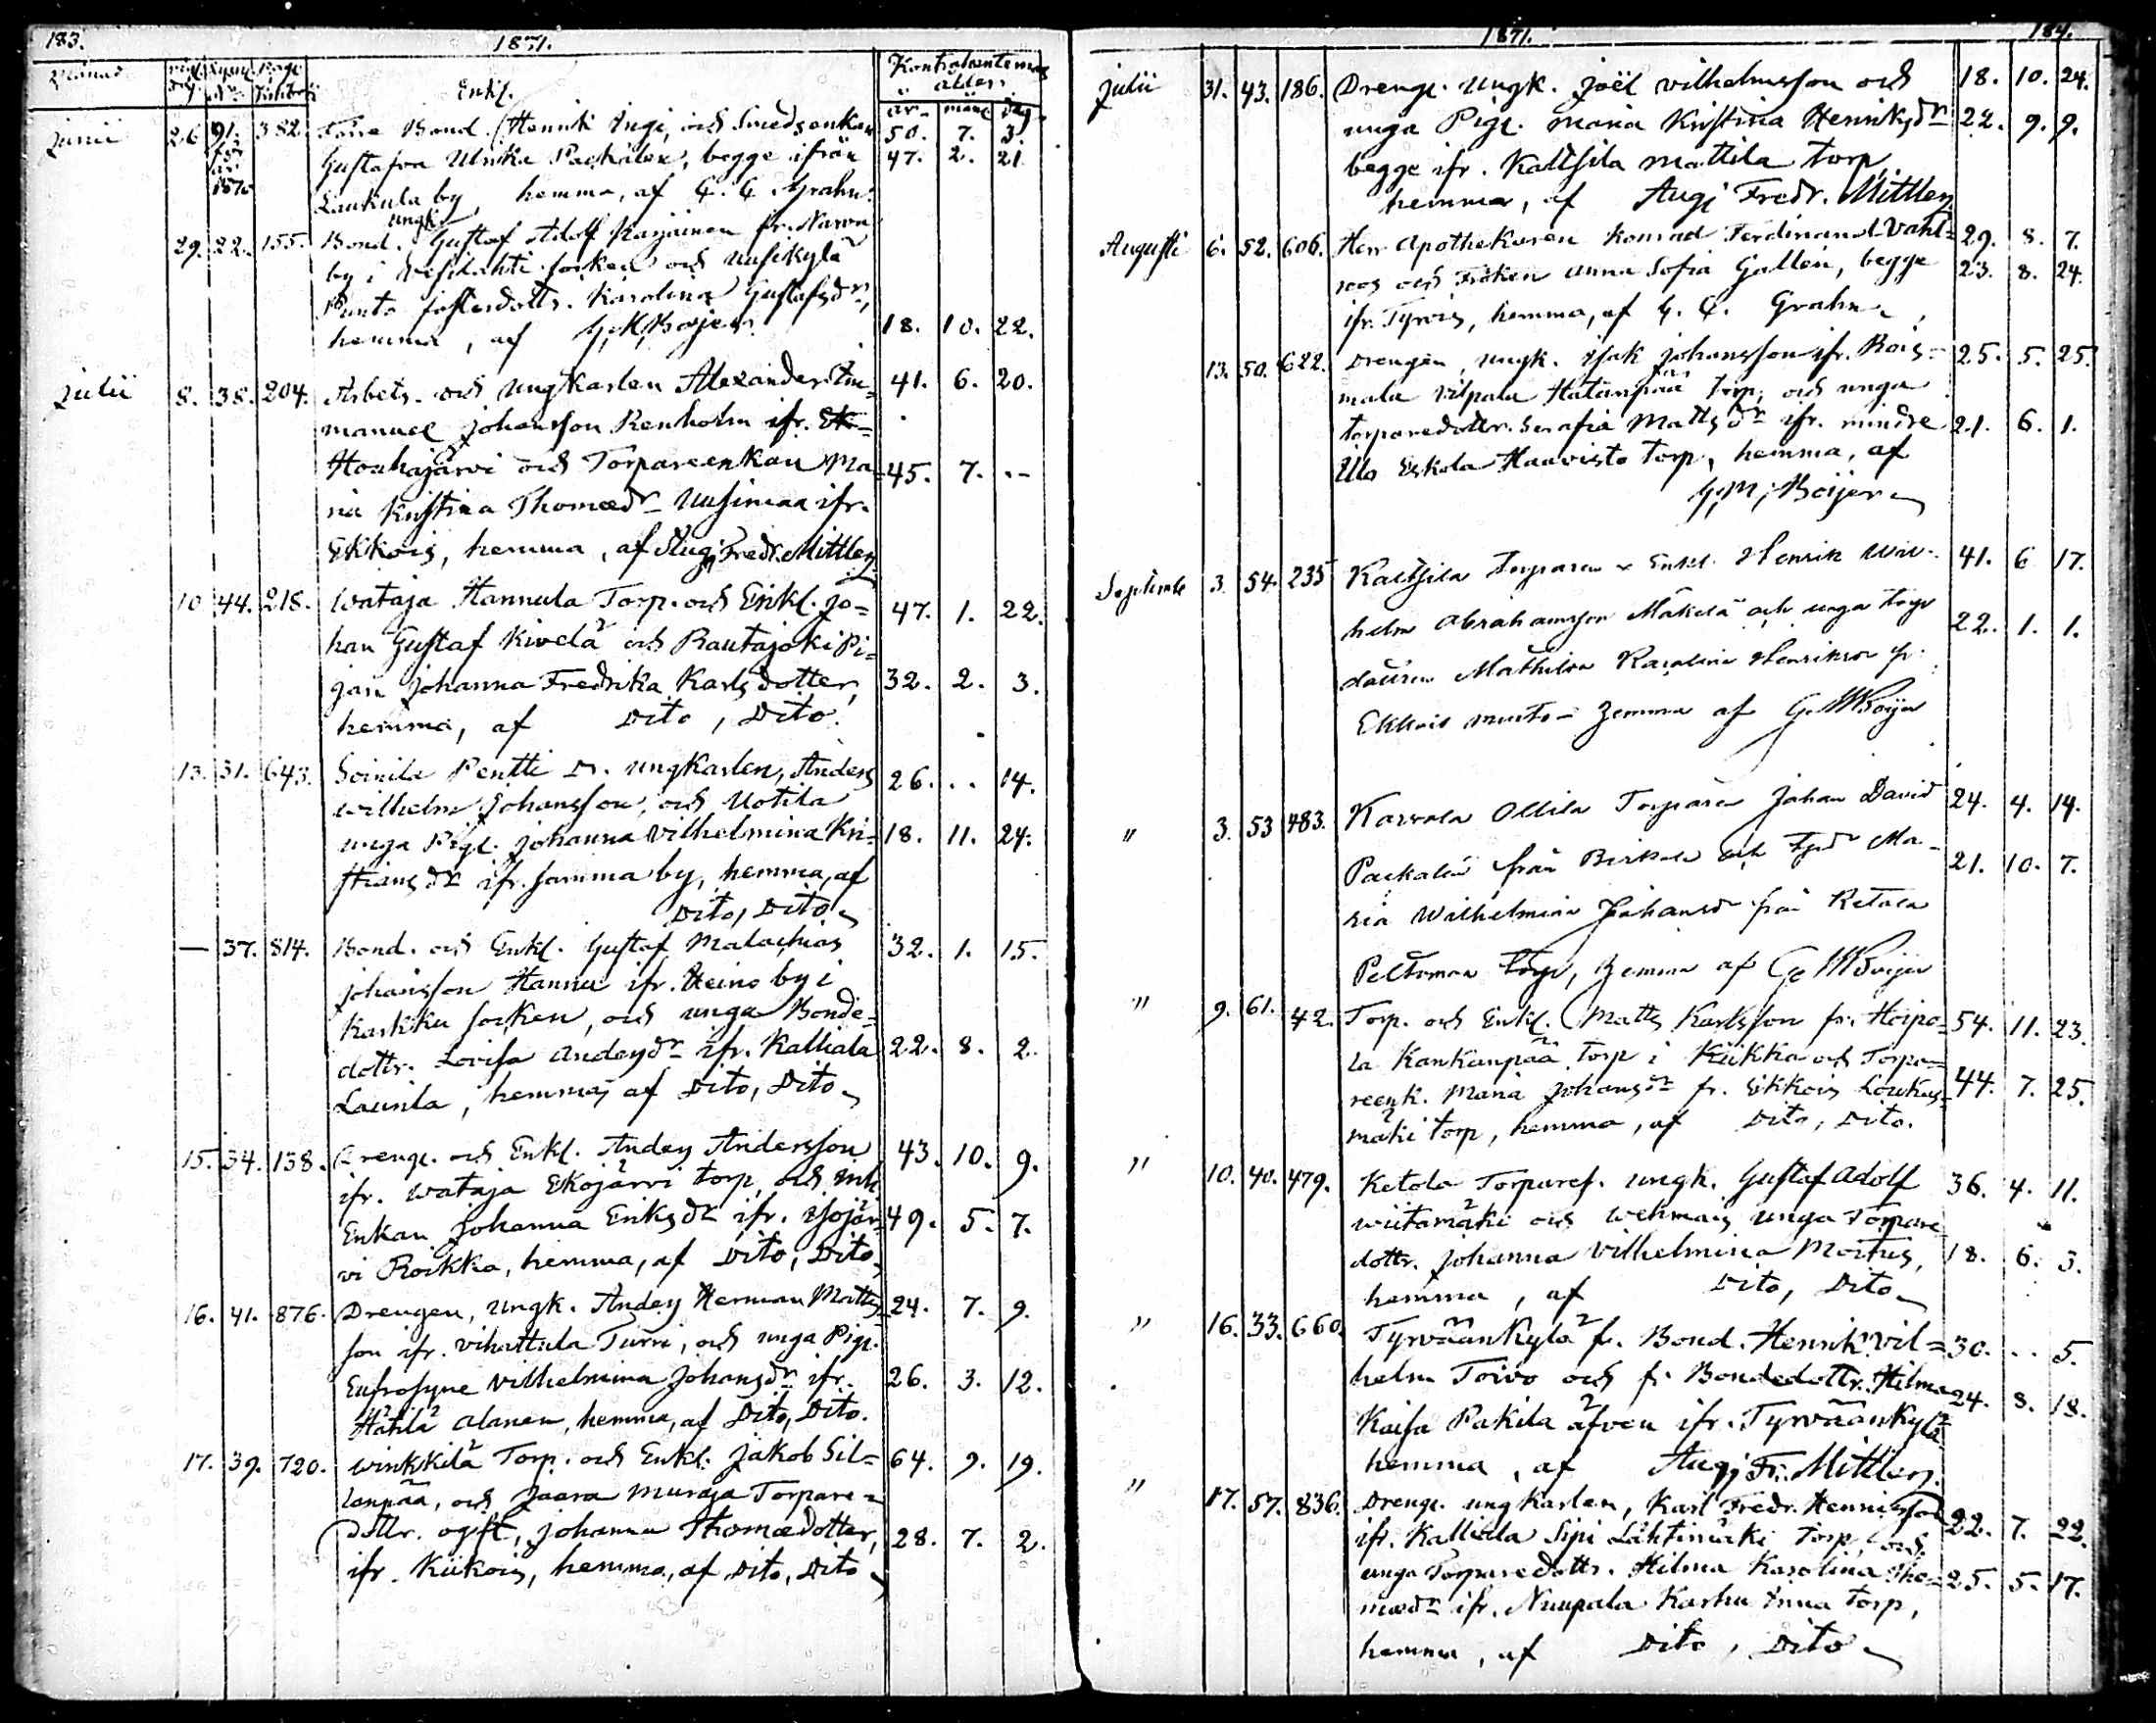 183. 1871.
Månad Kontrahenternas
ålder
Enkl. år mån dag
Junii 26 91. 382. Förre Bond. Henrik Ingi, och Smedsenkan 50. 7. 3.
för år 1870 Gustafva Ulrika Packalen, begge ifrån 47. 2. 21.
Laukula by, hemma, af G. C. Grahn.
ungk.
29. 22. 155. Bond. Gustaf Adolf Karjainen fr. Narva
by i Vesilahti socken och Uusikylä
Punto fosterdottr. Karolina Gustafsdr,
hemma, af 18. 10. 22.
Julii 8. 38. 204. Arbets. och Ungkarlen Alexander Em= 41. 6. 20.
manuel Johansson Renholm ifr.
Houhajärvi och Torpareenkan Ma= 45. 7. --
ria Kristina Thomædr Uusimaa ifr.
Ekkois, hemma, af Aug. Fredr. Mittler
10 44. 218. Wataja Hannula Torp. och Enkl. Jo= 47. 1. 22.
han Gustaf Kivelä och Rautajoki Pi=
gan Johanna Fredrika Karlsdotter, 32. 2. 3.
hemma, af Dito, Dito.
13. 31. 643. Soinila Pentti Dr. Ungkarlen, Anders 26. .. 14.
Wilhelm Johansson, och Uotila
unga Pige. Johanna Vilhelmina Kri= 18. 11. 24.
stiansdr ifr. samma by, hemma, af
Dito, Dito
— 37. 814. Bond. och Enkl. Gustaf Malachias 32. 1. 15.
Johansson Hannu ifr. Heino by i
Karkku socken, och unga Bonde=
dottr. Lovisa Andersdr ifr. Kalliala 22. 8. 2.
Launla, hemma, af Dito, Dito
15. 34. 138. Drenge. och Enkl. Anders Andersson 43. 10. 9.
ifr. Wataja Ekojärvi torp, och Inh.
Enkan Johanna Eriksdr ifr. Isojär= 49. 5. 7.
vi Roikka, hemma, af Dito, Dito
16. 41. 876. Drengen, Ungk. Anders Herman Matts 24. 7. 9.
son ifr. Vihattula Turri, och unga Pige.
Eufrosyne Vilhelmina Johansdr ifr. 26. 3. 12.
Hählä Alanen, hemma, af Dito, Dito.
17. 39. 720. Winkkilä Torp. och Enkl. Jakob Sil= 64. 9. 19.
lanpää, och Jaara Muraja Torpare=
dottr. ogift, Johanna Thomædotter, 28. 7. 2.
ifr. Kiikois, hemma, af Dito, Dito
1871. 184.
Julii 31. 43. 186. Drenge. Ungk. Joël Vilhelmsson och 18. 10. 24.
unga Pige. Maria Kristina Henriksdr 22. 9. 9.
begge ifr. Kaltsila Mattila torp,
hemma, af Aug. Fredr. Mittler
Augusti 6. 52. 606. Herr Apothekaren Konrad Ferdinand Vahl= 29. 8. 7.
roos och Fröken Anna Sofia Gallén, begge 23. 8. 24.
ifr. Tyrvis, hemma, af G. C. Grahn
13. 50. 622. Drengen, Ungk. Isak Johansson ifr. Rois= 25. 5. 25.
mala Vilpala Hatanpää torp, och unga
torparedottr. Serafia Mattsdr ifr. mindre 21. 6. 1.
Ulo Eskola Haavisto torp, hemma, af
G. M. Boijer
September 3. 54. 235 Kaltsila Torparen o Enkl. Henrik Wil= 41. 6 17.
helm Abrahamsson Mäkelä och unga torp 22. 1. 1.
Mathilda Karolina Henriksdr fr.
Ekkois hemma af G. M. Boijer
" 3. 53 483. Karvola Ollila Torparen Johan David 24. 4. 14.
Packalén från Birkala och Ma= 21. 10. 7.
ria Wilhelmina Johansdr från Ketola
Peltoman torp, hemma af G. M. Boijer
" 9. 61. 42. Torp. och Enkl. Matts Karlsson fr. Heipo= 54. 11. 23.
la Kankanpää torp i Kiikka och Torpa=
reenk. Maria Johansdr fr. Ekkois Loukas= 44. 7. 25.
mäki torp, hemma, af Dito, Dito.
" 10. 40. 479. Ketola Torpares. Ungk. Gustaf Adolf 36. 4. 11.
Wiitamäki och Wehmais unga Torpare
dottr. Johanna Vilhelmina Martus, 18. 6. 3.
hemma, af Dito, Dito
" 16. 33. 660. Tyrväänkylä f. Bond. Henrik Vil= 30. .. 5.
helm Toivo och f. Bondedottr. Hilma 24. 8. 18.
Kaisa Pakila äfven ifr. Tyrväänkylä
hemma, af Aug. Fr. Mittler
" 17. 57. 836. Drenge. Ungkarlen, Karl Fredr. Henriksson 22. 7. 22.
ifr. Kalliala Sipi Lähtimäki torp, och
unga Torparedottr. Hilma Karolina Tho= 25. 5. 17.
mædr ifr. Nuupala Karhu Inna torp,
hemma, af Dito, Dito